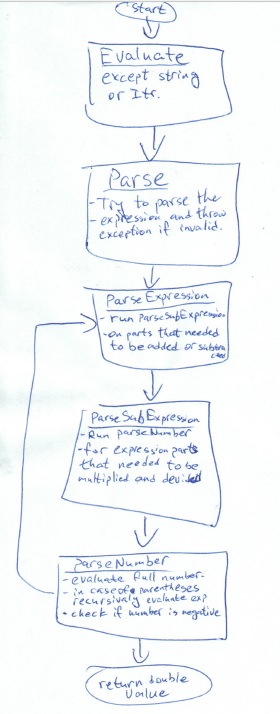 Start
Evaluate
except string
or Itr.
Parse
- Try to parse the
- expression and throw
exception if invalid.
ParseExpression
- run ParseSubExpression
- on parts that needed
to be added or substra
cted
ParseSubExpression
- Run parseNumber
- for expression parts
that needed to be
multiplied and devided
ParseNumber
- evaluate full number.
- in case of a parentheses
recursivly evaluate exp
• check if number is negative
return double
Value